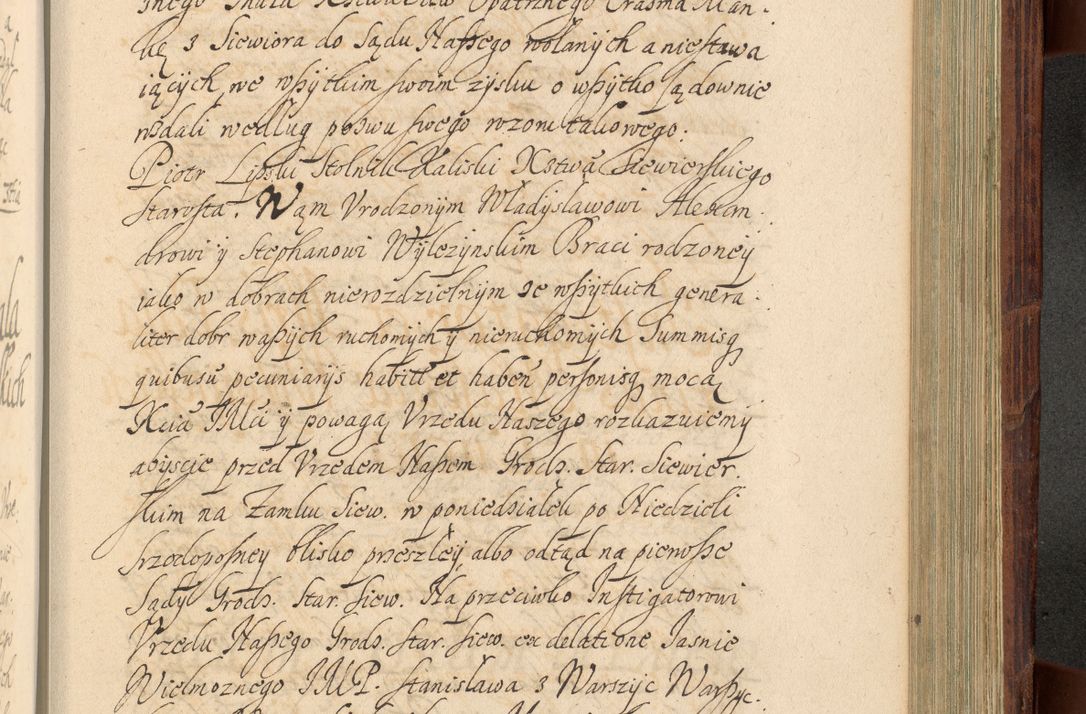 kę z Siewiora do Sądu Naszego wołanych a niestawa
iących, we wszytkim swoim zysku o wszytko sądownie
wzdali według pozwu swego wzom takowego.
Piotr Lipski Stolnik Kaliski Xstwa Siewierskiego
Starosta. Wąm Vrodzonym Władysławowi Alexan
drowi y Stephanowi Wylezynskim Braci rodzoney
iako w dobrach nierozdzielnym ze wszytkich genera
liter dobr waszych ruchomych y nieruchomych Summisq
quibusu pecuniarys habitt et haben personisq mocą
Xcia IMci y powagą Vrzedu Naszego rozkazuiemy
abyscie przed Vrzedem Naszem Grodz. Star. Siewier.
skim na Zamku Siew. w poniedziałek po Niedzieli
srzodoposney blisko przeszłey albo odtąd na pierwsze
Sądy Grodz. Star. Siew. Na przeciwko Instigatorowi
Vrzedu Naszego Grodz. Star. Siew. ex delatione Jasnie
Wielmoznego IMP. Stanisława z Warszyc Warszyc.